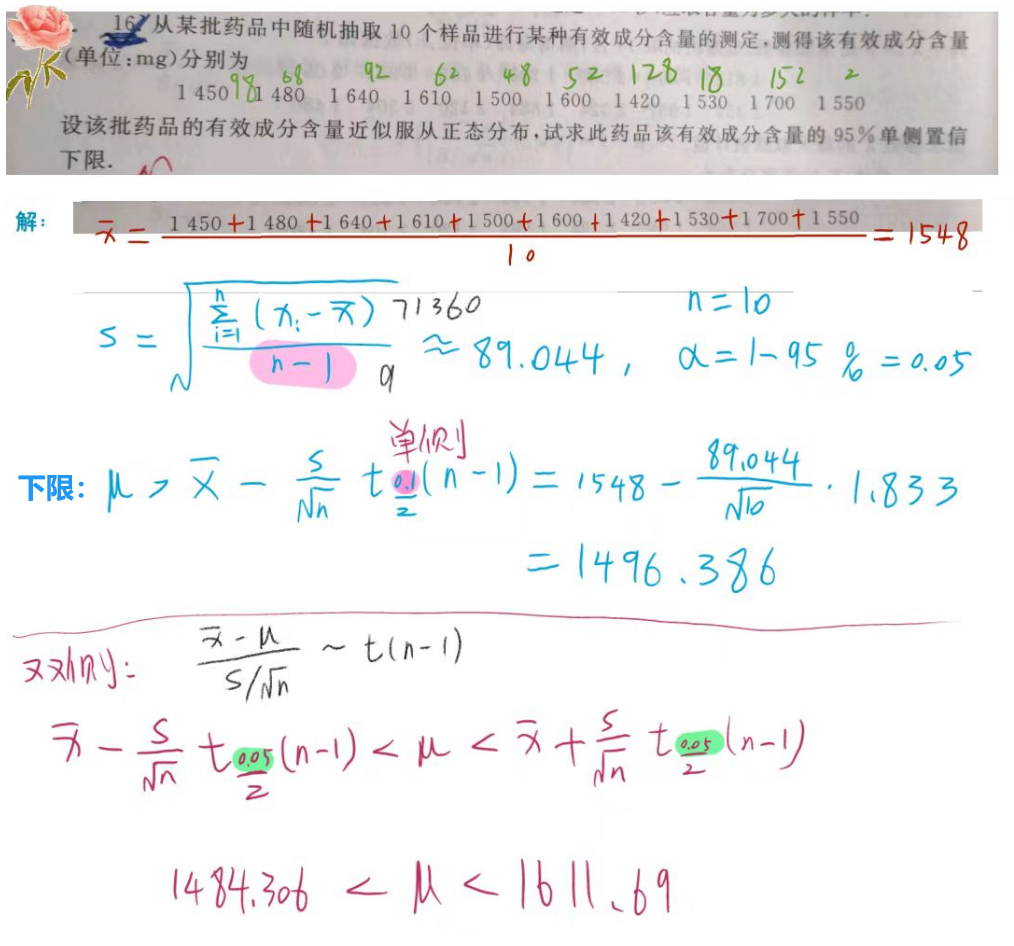 16 从某批药品中随机抽取 10 个样品进行某种有效成分含量的测定,测得该有效成分含量
(单位:mg)分别为
98 68 92 62 48 52 128 18 152 2
1 450 1 480 1 640 1 610 1 500 1 600 1 420 1 530 1 700 1 550
设该批药品的有效成分含量近似服从正态分布,试求此药品该有效成分含量的 95%单侧置信
下限.
解: x̄ = (1 450 + 1 480 + 1 640 + 1 610 + 1 500 + 1 600 + 1 420 + 1 530 + 1 700 + 1 550) / 10 = 1548
S = √( Σ_{i=1}^{n} (x_i - x̄) 71360 / n-1 9 ) ≈ 89.044, n=10 α=1-95%=0.05
单侧
下限: μ > x̄ - S/√n t_{0.1/2}(n-1) = 1548 - 89.044/√10 · 1.833
= 1496.386
双侧: (x̄-μ)/(S/√n) ~ t(n-1)
x̄ - S/√n t_{0.05/2}(n-1) < μ < x̄ + S/√n t_{0.05/2}(n-1)
1484.306 < μ < 1611.69